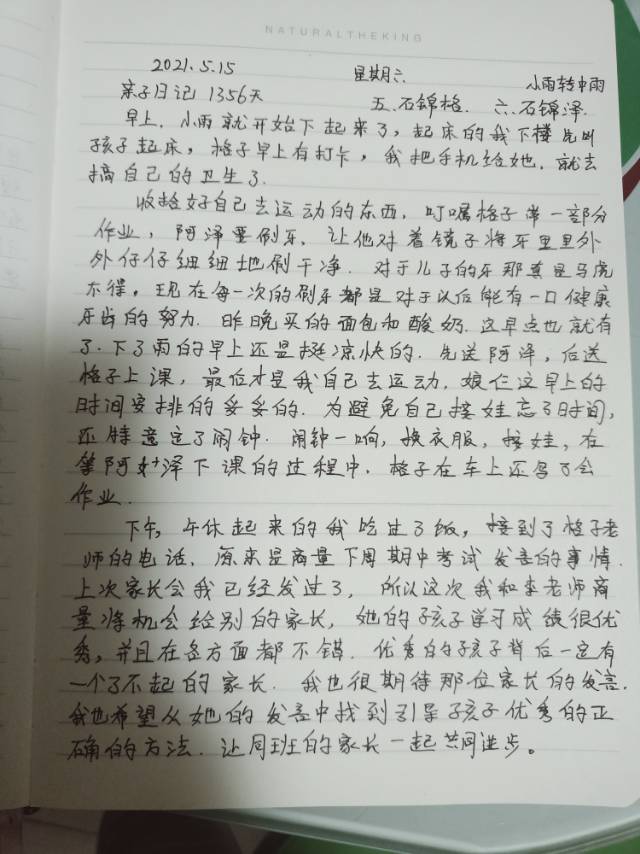 NATURALTHEKING
2021.5.15 星期六 小雨转中雨
亲子日记 1356天 五.石锦格. 六.石锦泽.
早上. 小雨就开始下起来了, 起床的我下楼先叫
孩子起床, 格子早上有打卡, 我把手机给她. 就去
搞自己的卫生了.
收拾好自己去运动的东西, 叮嘱格子带一部分
作业, 阿泽要刷牙. 让他对着镜子将牙里里外
外仔仔细细地刷干净. 对于儿子的牙那真是马虎
不得. 现在每一次的刷牙都是对于以后能有一口健康
牙齿的努力. 昨晚买的面包和酸奶. 这早点也就有
了. 下了雨的早上还是挺凉快的. 先送阿泽, 后送
格子上课, 最后才是我自己去运动. 娘仨这早上的
时间安排的妥妥的. 为避免自己接娃忘了时间,
还特意定了闹钟. 闹钟一响, 换衣服, 接娃, 在
等阿泽下课的过程中. 格子在车上还写了会
作业.
下午, 午休起来的我吃过了饭, 接到了格子老
师的电话. 原来是商量下周期中考试发言的事情.
上次家长会我已经发过了, 所以这次我和李老师商
量将机会给别的家长, 她的孩子学习成绩很优
秀, 并且在各方面都不错. 优秀的孩子背后一定有
一个了不起的家长. 我也很期待那位家长的发言.
我也希望从她的发言中找到引导孩子优秀的正
确的方法. 让同班的家长一起共同进步。